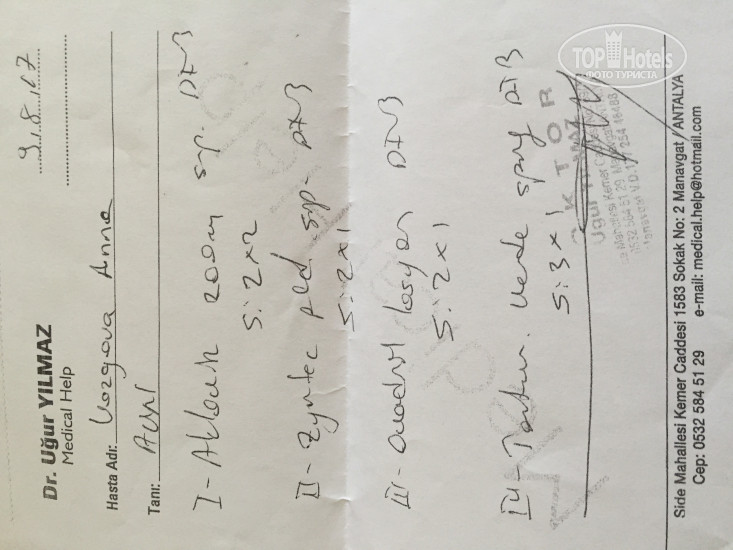 Dr. Uğur YILMAZ
Medical Help
9.8.17
Hasta Adı: Anna
Tanı:
I - 200m syp. DTB
S: 2x2
II - Zyrtec ped syp. DTB
S: 2x1
III - losyon DTB
S: 2x1
IV - Tantum Verde sprey DTB
S: 3x1
DOKTOR
Uğur YILMAZ
Side Mahallesi Kemer Caddesi 1583 Sokak No: 2 Manavgat / ANTALYA
Cep: 0532 584 51 29 e-mail: medical.help@hotmail.com
TOP Hotels
ФОТО ТУРИСТА